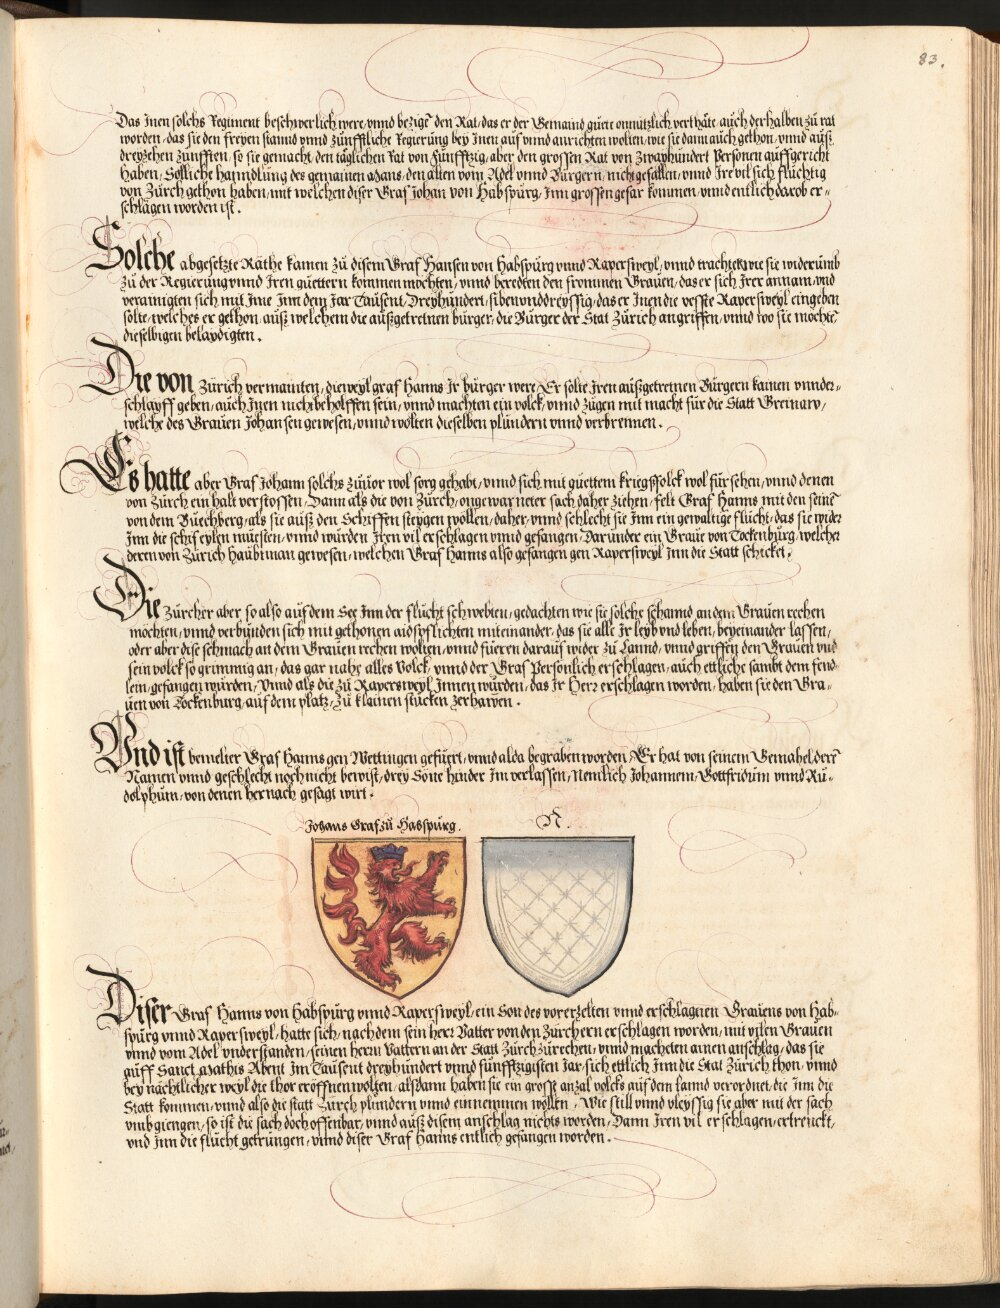 83.
Das Inen solchs Regiment beschwerlich were, vnnd bezige den Rat, das er der Gemaind güete onnützlich verthäte, auch derhalben zü rat
worden, das sie den freyen stannd vnnd zünfftliche Regierung bey Inen auf vnnd anrichten wolten, wie sie dann auch gethon, vnnd auß
dreyzehen zünfften, so sie gemacht, den täglichen Rat von Fünfftzig, aber den grossen Rat von Zwayhündert Personen auffgericht
haben, Solliche hanndlung des gemainen Mans, den alten vom Adel vnnd Bürgern, nicht gefallen, vnnd Ire vil sich flüchtig
von Zürch gethon haben, mit welchen diser Graf Johan von Habspürg, Inn grossen gefar kommen, vnnd entlich darob er-
schlagen worden ist.
Solche abgesetzte Räthe kamen zü disem Graf Hansen von Habspürg vnnd Raperssweyl, vnnd trachtet wie sie widerümb
zü der Regierüng vnnd Iren güettern kommen möchten, vnnd beredten den frommen Grauen, das er sich Irer annam, vnd
verainigten sich mit Ime Inn dem Jar Taüsent, Dreyhündert, siben vnd dreyssig, das er Inen die vesste Raperssweyl eingeben
solte, welches er gethon, auß welchem die außgetretnen bürger, die Bürger der Stat Zürich angriffen, vnnd wo sie möchte,
dieselbigen belaydigten.
Die von Zürich vermainten, dieweyl graf Hanns Ir bürger were, Er solte Iren außgetretnen Bürgern kainen vnnder-
schlayff geben, auch Inen nicht beholffen sein, vnnd machten ein volck, vnnd zügen mit macht für die Statt Greinaw,
welche des Grauen Johansen gewesen, vnnd wolten dieselben plündern vnnd verbrennen.
Es hatte aber Graf Johann solchs züuor wol sorg gehabt, vnnd sich mit güettem kriegssfolck wol fürsehen, vnnd denen
von Zürch ein halt verstossen, Dann als die von Zürch, ongewarneter sach daher ziehen, felt Graf Hanns mit den seinē
von dem Büechberg, als sie auß den Schiffen steygen wollen, daher, vnnd schlecht sie Inn ein gewaltige flücht, das sie wider
Inn die schif eylen müesten, vnnd würden Iren vil erschlagen vnnd gefangen, Daründer ein Graue von Tockenbürg, welcher
deren von Zürich Haübtman gewesen, welchen Graf Hanns also gefangen gen Raperssweyl Inn die Statt schicket.
Die Zürcher aber so also auf dem See Inn der flücht schwebten, gedachten wie sie solche schannd an dem Grauen rechen
möchten, vnnd verbünden sich mit gethonen aidspflichten miteinander, das sie alle Ir leyb vnd leben, beyeinander lassen,
oder aber dise schmach an dem Grauen rechen wolten, vnnd füeren darauf wider zü Lannd, vnnd griffen den Grauen vnd
sein volck so grimmig an, das gar nahe alles Volck, vnnd der Graf Persönlich erschlagen, auch ettliche sambt dem fend-
lein, gefangen würden, Vnnd als die zü Raperssweyl Innen würden, das Ir Herr erschlagen worden, haben sie den Gra-
uen von Tockenburg, auf dem platz, zü klainen stücken zerhawen.
Vnd ist bemelter Graf Hanns gen Wettingen gefüert, vnnd alda begraben worden, Er hat von seinem Gemahel derē
Namen vnnd geschlecht noch nicht bewist, drey Söne hinder Im verlassen, Nemlich Johannem, Gottfridüm vnnd Rü-
dolphüm, von denen hernach gesagt wirt.
Johans Graf zü Habspürg.
N.
Diser Graf Hanns von Habspürg vnnd Raperssweyl, ein Son des vorerzelten vnnd erschlagnen Grauens von Hab-
spürg vnnd Raperssweyl, hatte sich, nachdem sein herr Vatter von den Zürchern erschlagen worden, mit vilen Grauen
vnnd vom Adel vnderstanden, seinen herrn Vattern an der Statt Zürch zürechen, vnnd macheten ainen anschlag, das sie
auff Sanct Mathis Abent Im Taüsent dreyhündert vnnd fünfftzigisten Jar, sich ettlich Inn die Stat Zürich thon, vnnd
bey nächtlicher weyl die thor eröffnen wolten, alsdann haben sie ein grosse anzal volcks auf dem lannd verordnet, die Inn die
Statt kommen, vnnd also die statt Zürch plündern vnnd einnemmen wöllen, Wie still vnnd vleyssig sie aber mit der sach
vmbgiengen, so ist die sach doch offenbar, vnnd auß disem anschlag nichts worden, Dann Iren vil erschlagen, ertrenckt,
vnd Inn die flücht getrüngen, vnnd diser Graf Hanns entlich gefangen worden.